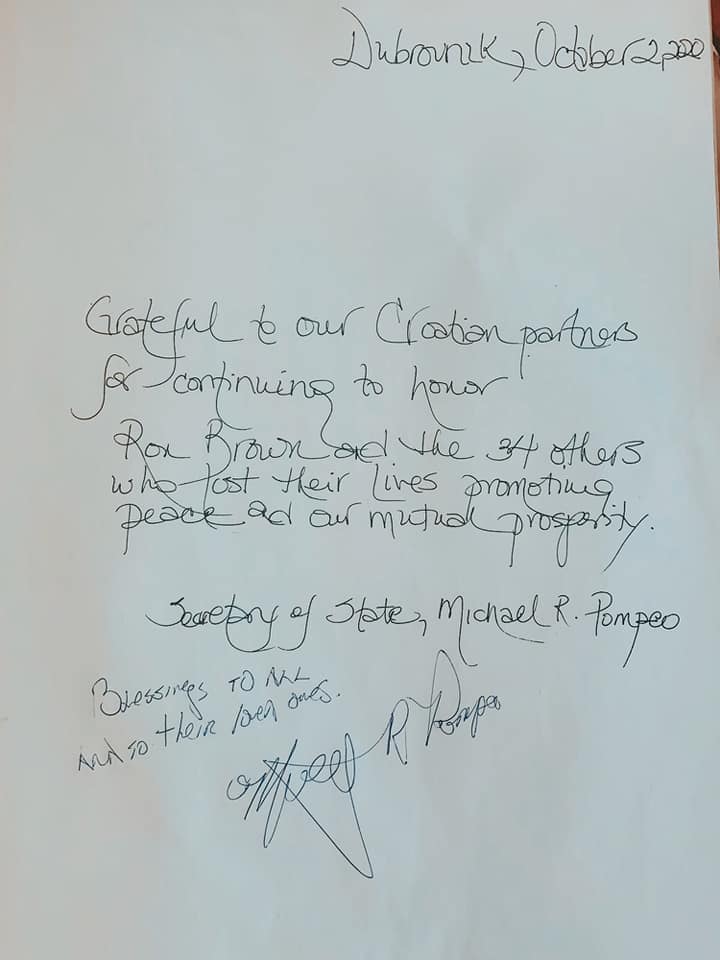 Dubrovnik, October 2, 2020
Grateful to our Croatian partners
for continuing to honor
Ron Brown and the 34 others
who lost their lives promoting
peace and our mutual prosperity.
Secretary of State, Michael R. Pompeo
Blessings TO ALL
AND TO their loved ones.
Michael R Pompeo